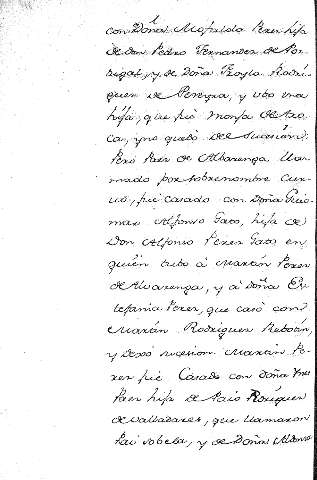 con Doña Mofalda Perez hija
de don Pedro Fernandez de Por
tugal, y de Doña Froyla Rodri
guez de Pereyra, y ubo una
hija, que fué monja de Aro
ca, y no quedó de sucesion.
Pero Paez de Albarenga llar
mado por sobrenombre Cur
vo, fué casado con Doña Guio
mar Alfonso Gato, hija de
Don Alfonso Perez Gato en
quien tubo á Martin Perez
de Alvarenga, y á Doña Es
tefania Perez, que casó con
Martin Rodriguez Rebotin,
y dexó sucesion. Martin Pe
rez fué Casado con doña Ynes
Paez hija de Paio Roriguez
de Valladares, que llamaron
Pai sobela, y de Doña Aldonza